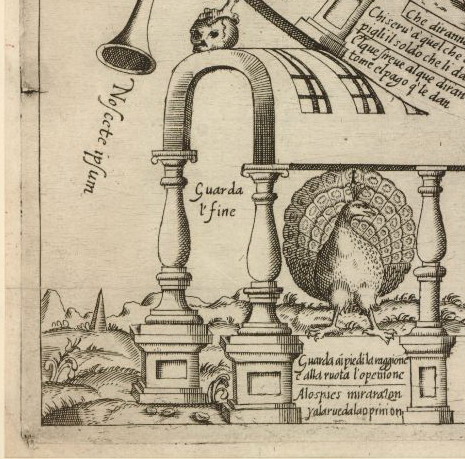 Che diranno
Chi serv' a quel che
Pigli il soldo che li da
I que sirve al que diran
tome el pago q' le dan
Noscete ipsum
Guarda
l' fine
Guarda ai piedi la raggione
e alla ruota l'openione
A los pies mira razon
y a la rueda la opinion